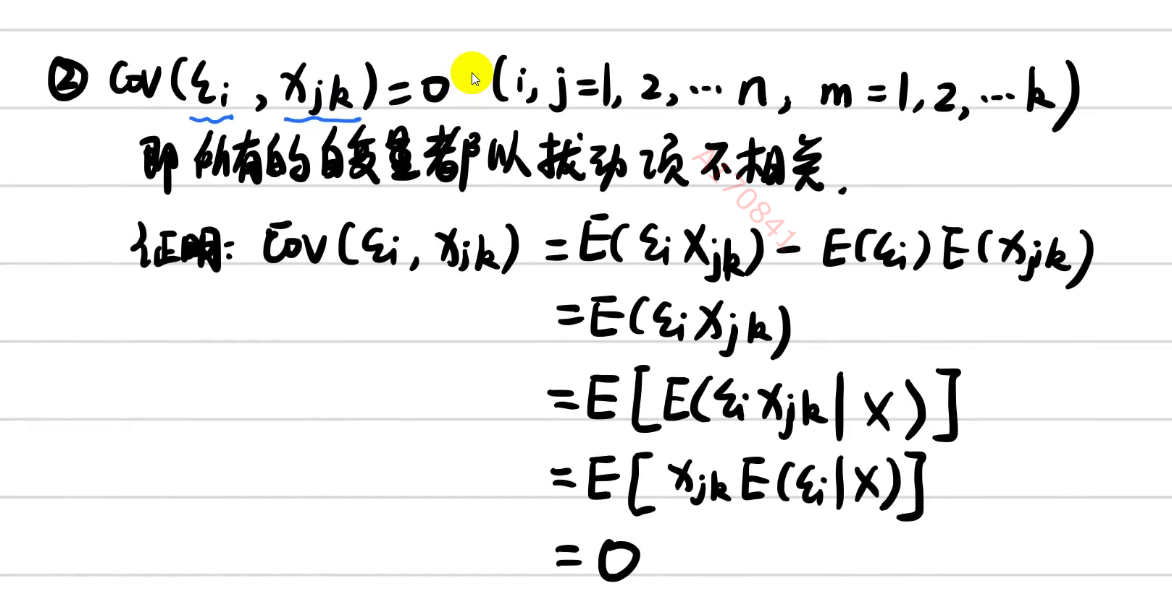 ② Cov(εi, xjk)=0 (i, j=1, 2, … n, m=1, 2, … k)
即所有的自变量都以扰动项不相关.
证明: Cov(εi, xjk) = E(εi xjk) - E(εi)E(xjk)
= E(εi xjk)
= E[E(εi xjk | X)]
= E[xjk E(εi | X)]
= 0